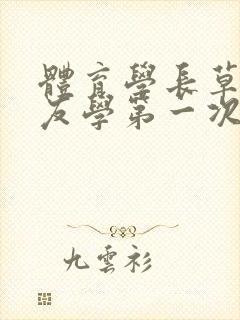 體育學長草
友學第一次
九雲衫